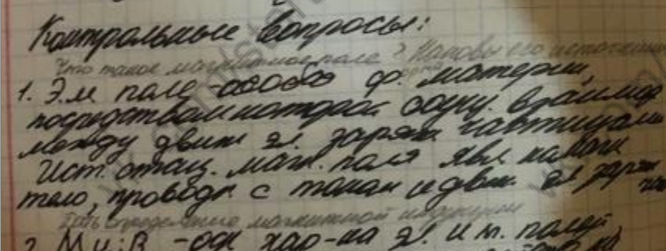 Контрольные вопросы:
Что такое магнитное поле? Каковы его источники
1. Эл поле - особая ф. материи,
посредством которой осущ. взаимод.
между движ эл. заряж. частицами
Ист. стац. маг. поля явл намагн
тело, проводн. с током и движ. эл заряж.
Дать определение магнитной индукции
2. - осн хар-ка эл. и м. полей